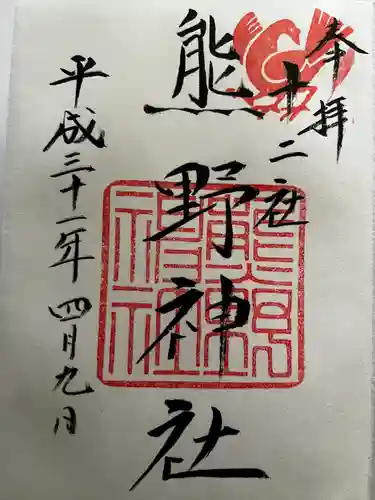 奉拝
十二社
熊野神社
平成三十一年四月九日
熊野神社